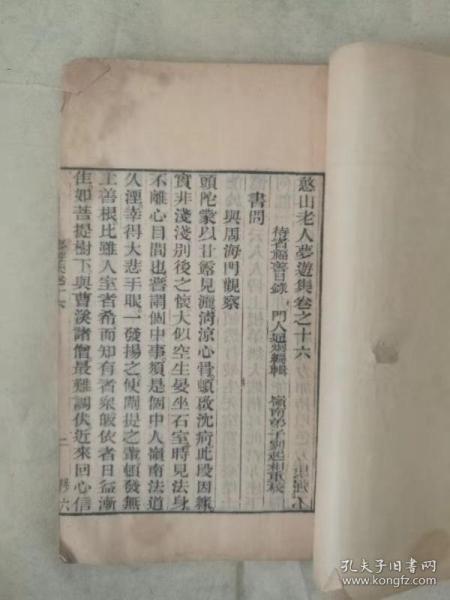 憨山老人夢遊集卷之十六
侍者福善日錄 門人通炯編輯 嶺南弟子劉起相重校
書問
與周海門觀察
頭陀蒙以甘露見灑清涼心骨頓啟沈痾此段因緣
實非淺淺別後之懷大似空生晏坐石室時見法身
不離心目間也嘗謂個中事須是個中人嶺南法道
久湮幸得大悲手眼一發揚之使闡提之輩頓發無
上善根比雖入室者希而知有者眾皈依者日益漸
佳如菩提樹下與曹溪諸僧最難調伏近來回心信
孔夫子旧书网
www.kongfz.com